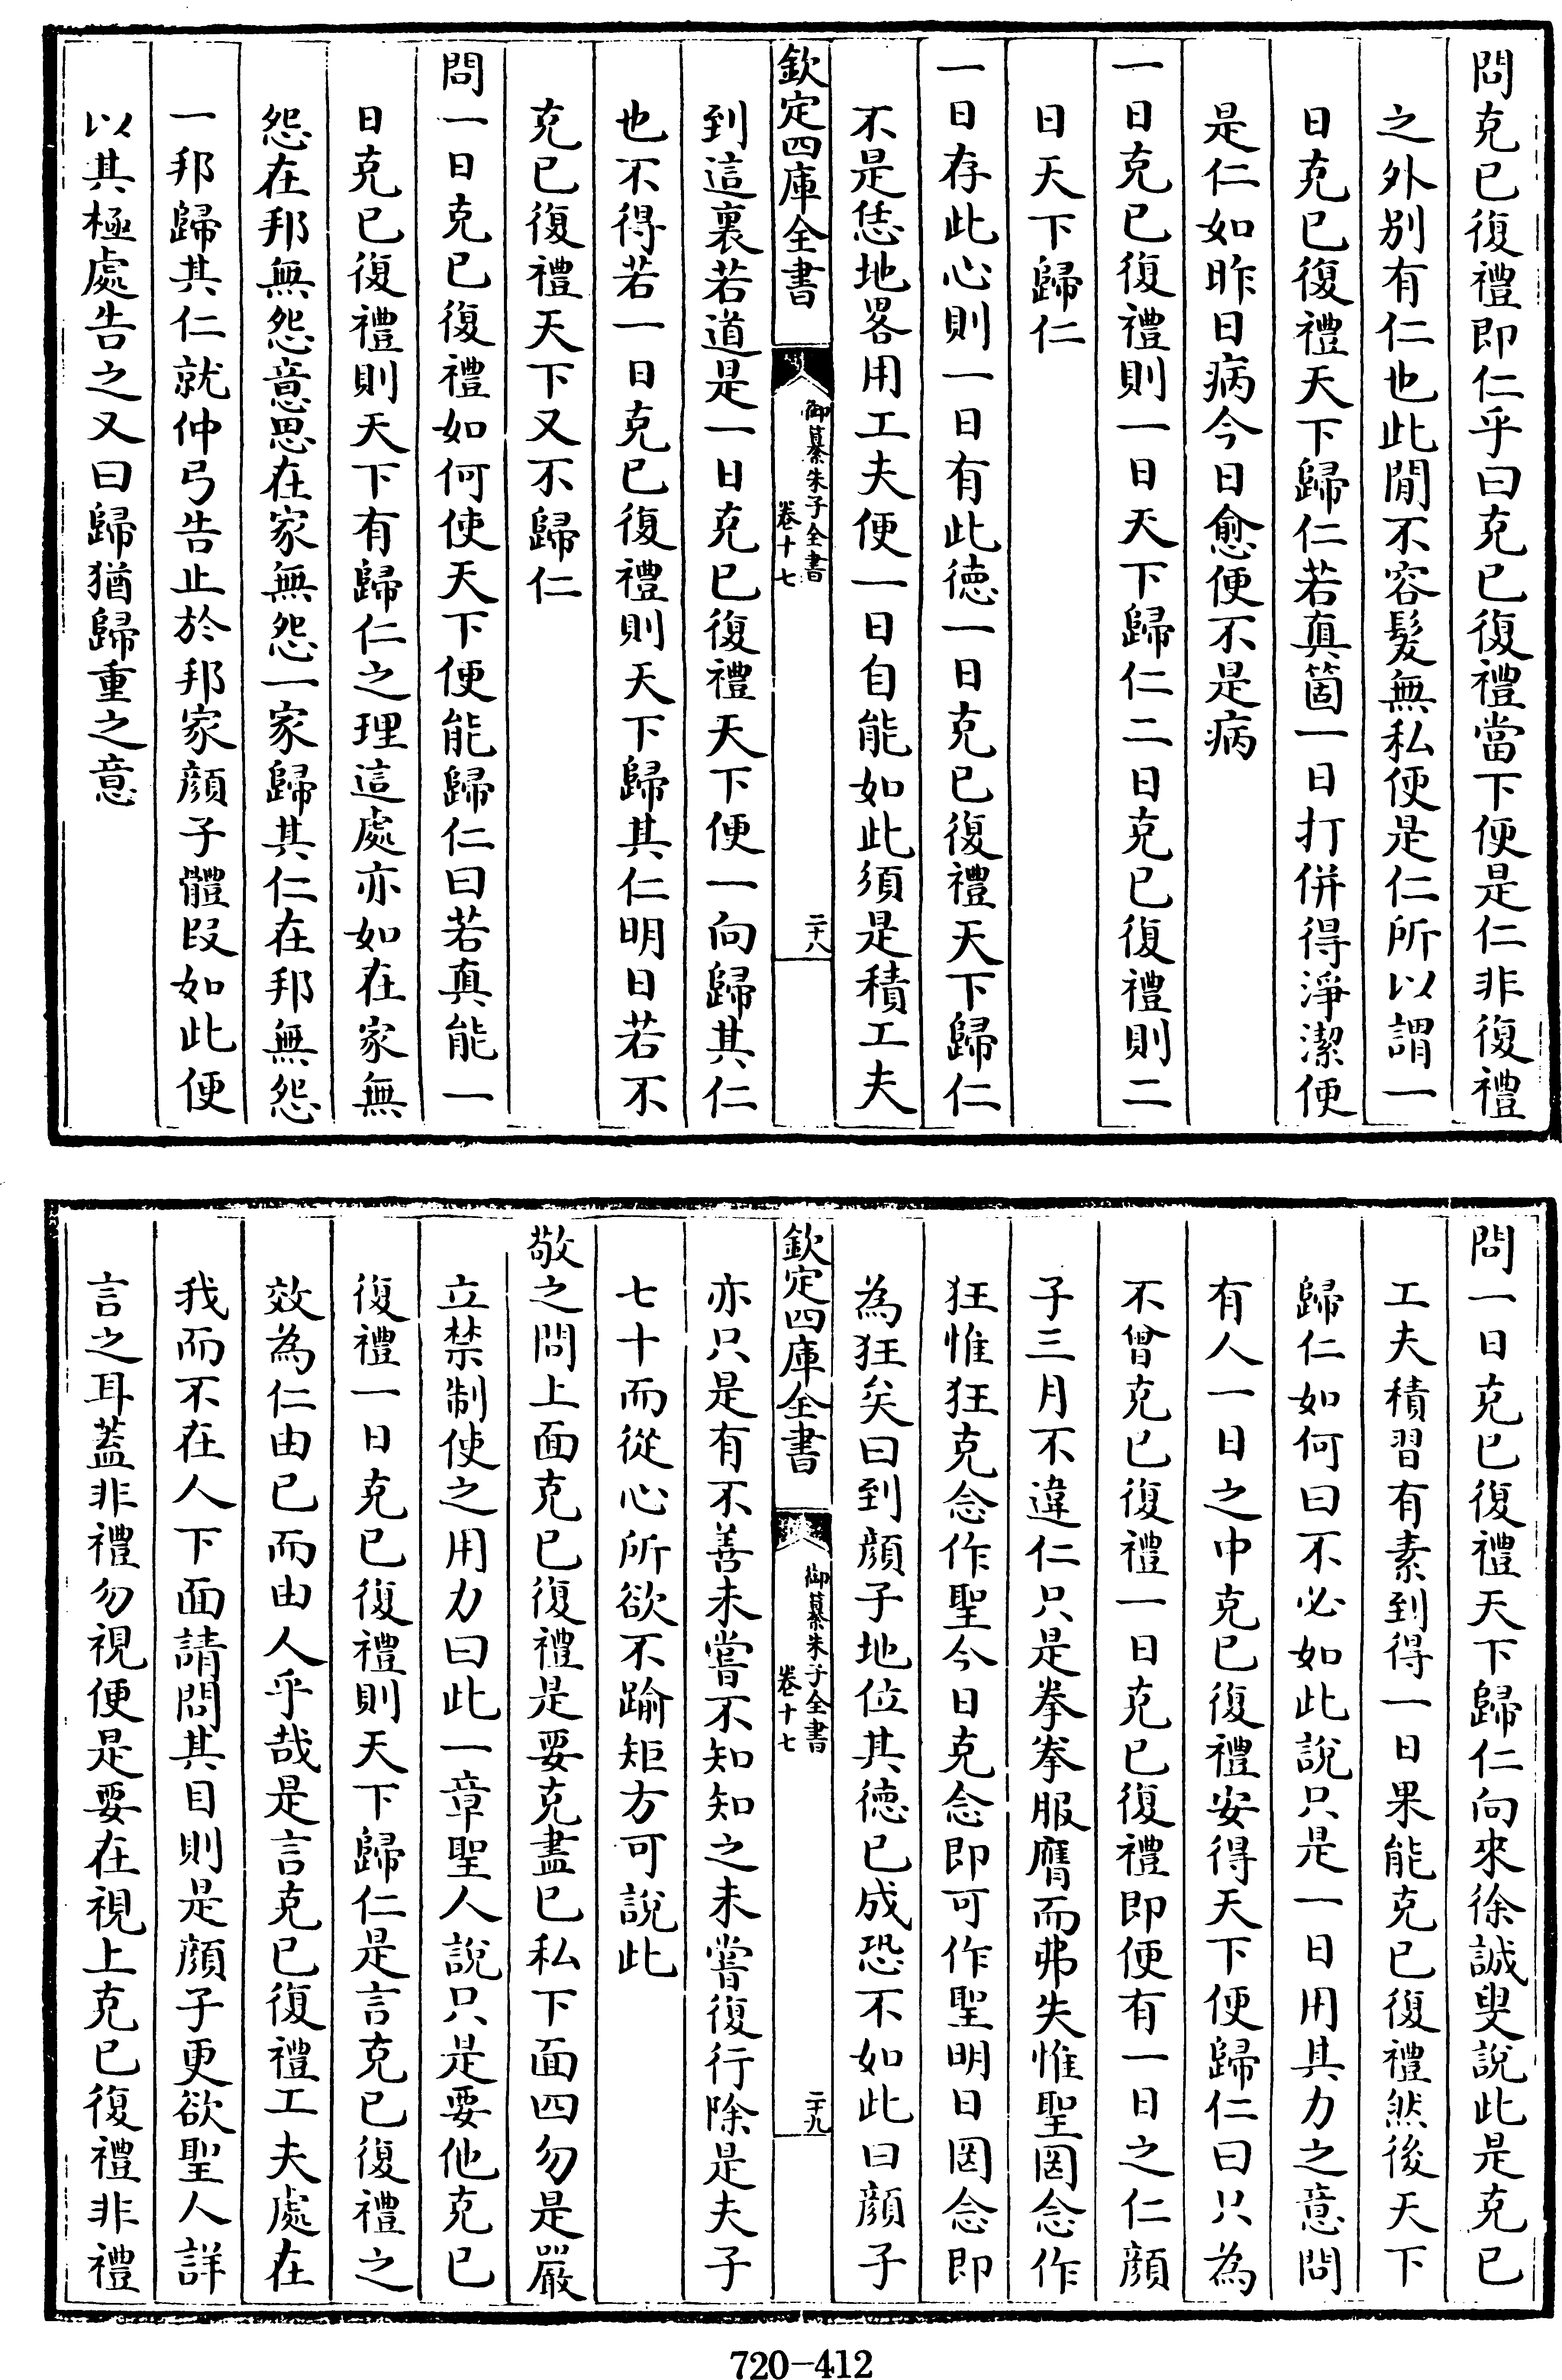 問克已復禮即仁乎曰克已復禮當下便是仁非復禮
之外别有仁也此間不容髮無私便是仁所以謂一
日克已復禮天下歸仁若真箇一日打併得淨潔便
是仁如昨日病今日愈便不是病
一日克已復禮則一日天下歸仁二日克已復禮則二
日天下歸仁
一日存此心則一日有此徳一日克已復禮天下歸仁
不是恁地畧用工夫便一日自能如此須是積工夫
欽定四庫全書
御纂朱子全書
卷十七
二十八
到這裏若道是一日克已復禮天下便一向歸其仁
也不得若一日克已復禮則天下歸其仁明日若不
克已復禮天下又不歸仁
問一日克已復禮如何使天下便能歸仁曰若真能一
日克已復禮則天下有歸仁之理這處亦如在家無
怨在邦無怨意思在家無怨一家歸其仁在邦無怨
一邦歸其仁就仲弓告止於邦家顔子體段如此便
以其極處告之又曰歸猶歸重之意
問一日克已復禮天下歸仁向來徐誠叟說此是克已
工夫積習有素到得一日果能克已復禮然後天下
歸仁如何曰不必如此說只是一日用其力之意問
有人一日之中克已復禮安得天下便歸仁曰只為
不曾克已復禮一日克已復禮即便有一日之仁顔
子三月不違仁只是拳拳服膺而弗失惟聖罔念作
狂惟狂克念作聖今日克念即可作聖明日罔念即
為狂矣曰到顔子地位其徳已成恐不如此曰顔子
欽定四庫全書
御纂朱子全書
卷十七
二十九
亦只是有不善未嘗不知知之未嘗復行除是夫子
七十而從心所欲不踰矩方可說此
敬之問上面克已復禮是要克盡已私下面四勿是嚴
立禁制使之用力曰此一章聖人說只是要他克已
復禮一日克已復禮則天下歸仁是言克已復禮之
效為仁由已而由人乎哉是言克已復禮工夫處在
我而不在人下面請問其目則是顔子更欲聖人詳
言之耳蓋非禮勿視便是要在視上克已復禮非禮
720-412